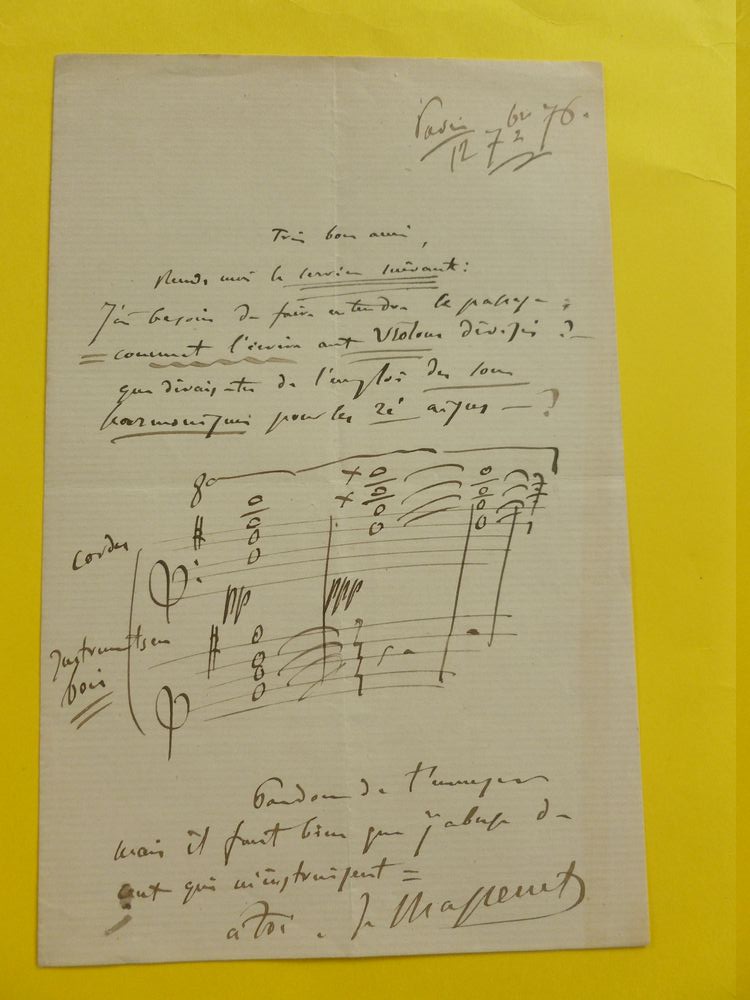 Paris
12 7bre 76.
Très bon ami,
Rends moi le service suivant :
J'ai besoin de faire entendre le passage ;
= comment l'écrire aux Violons divisés ? —
que dirais-tu de l'emploi des sons
harmoniques pour les ré aigus — ?
8a
Cordes
pp ppp
Instruments en
bois
Pardon de t'ennuyer
mais il faut bien que j'abuse de
ceux qui m'instruisent =
à toi. J. Massenet